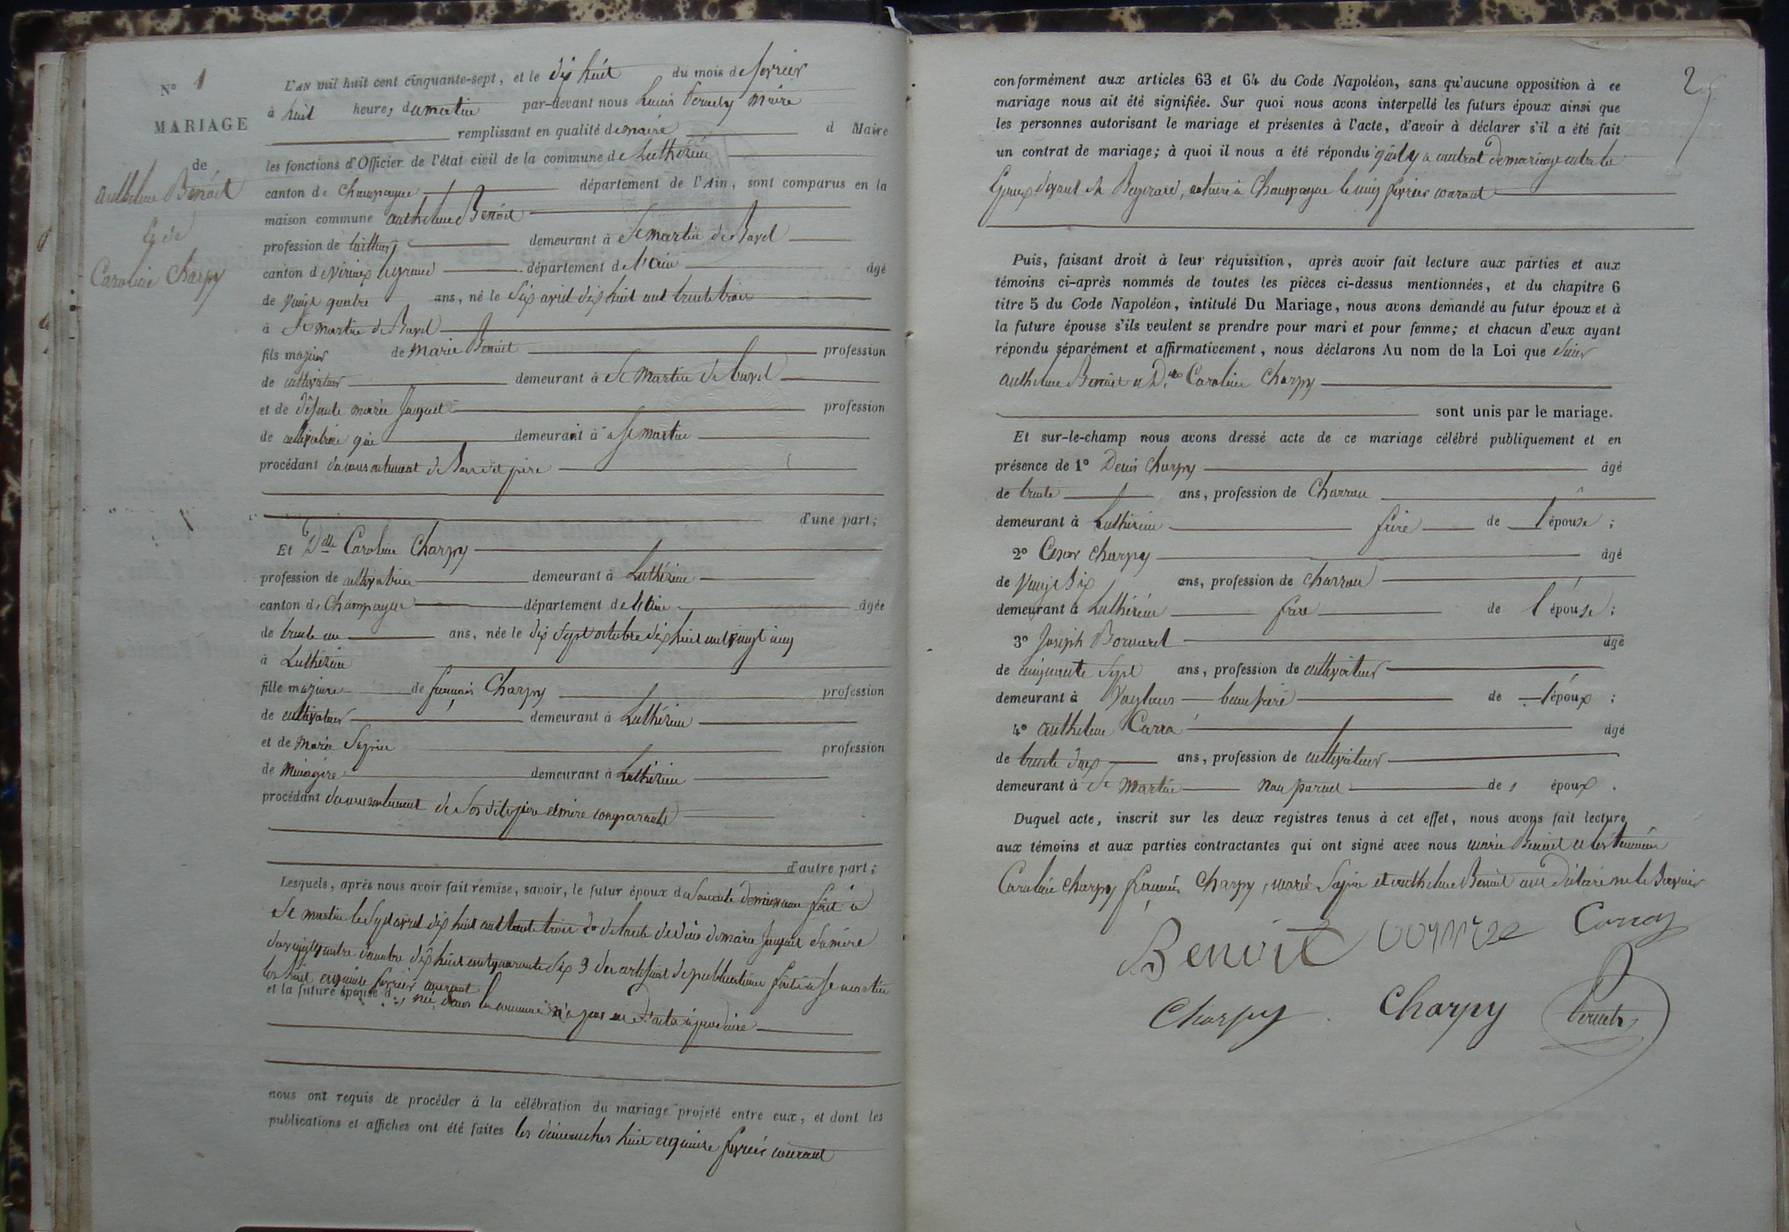 N° 1
MARIAGE
de
anthelme Benoit
& de
Caroline Charpy
L'AN mil huit cent cinquante-sept, et le dix huit du mois de fevrier
à huit heures du matin par-devant nous Louis maire
remplissant en qualité de maire d Maire
les fonctions d'Officier de l'état civil de la commune de Luthézieu
canton de Champagne département de l'Ain, sont comparus en la
maison commune anthelme Benoit
profession de demeurant à St martin de Bavel
canton de virieux le grand département de l'ain âgé
de vingt quatre ans, né le six avril dix huit cent trente trois
à St martin de Bavel
fils majeur de marie Benoit profession
de cultivateur demeurant à St martin de bavel
et de défunte marie Jaquet profession
de cultivatrice qui demeurait à St martin
procédant du consentement de Son dit père
d'une part;
Et Dlle Caroline Charpy
profession de cultivatrice demeurant à Luthézieu
canton de Champagne département de l'Ain âgée
de trente un ans, née le dix sept octobre dix huit cent vingt cinq
à Luthézieu
fille majeure de françois Charpy profession
de cultivateur demeurant à Luthézieu
et de marie profession
de ménagère demeurant à Luthézieu
procédant du consentement de Ses dits père et mère comparants
d'autre part;
Lesquels, après nous avoir fait remise, savoir, le futur époux de Son acte de naissance fait à
St martin le Sept avril dix huit cent trente trois 2° de l'acte de décès de marie Jaquet Sa mère
du vingt quatre dix huit cent quarante Six 3 du certificat de publications faites à St martin
les huit et quinze fevrier courant
et la future épouse née dans la commune n'a pas eu d'acte à produire
nous ont requis de procéder à la célébration du mariage projeté entre eux, et dont les
publications et affiches ont été faites les dimanches huit et quinze fevrier courant
2
conformément aux articles 63 et 64 du Code Napoléon, sans qu'aucune opposition à ce
mariage nous ait été signifiée. Sur quoi nous avons interpellé les futurs époux ainsi que
les personnes autorisant le mariage et présentes à l'acte, d'avoir à déclarer s'il a été fait
un contrat de mariage; à quoi il nous a été répondu qu'il y a contrat de mariage entre les
Epoux devant notaire à Champagne le cinq fevrier courant
Puis, faisant droit à leur réquisition, après avoir fait lecture aux parties et aux
témoins ci-après nommés de toutes les pièces ci-dessus mentionnées, et du chapitre 6
titre 5 du Code Napoléon, intitulé Du Mariage, nous avons demandé au futur époux et à
la future épouse s'ils veulent se prendre pour mari et pour femme; et chacun d'eux ayant
répondu séparément et affirmativement, nous déclarons Au nom de la Loi que Sieur
anthelme Benoit et Dlle Caroline Charpy
sont unis par le mariage.
Et sur-le-champ nous avons dressé acte de ce mariage célébré publiquement et en
présence de 1° Denis Charpy âgé
de trente ans, profession de Charron
demeurant à Luthézieu frère de l'épouse;
2° Charpy âgé
de vingt Six ans, profession de charron
demeurant à Luthézieu frère de l'épouse;
3° Joseph âgé
de cinquante Sept ans, profession de cultivateur
demeurant à beau frère de l'époux;
4° anthelme Carra âgé
de trente deux ans, profession de cultivateur
demeurant à St martin non parent de l'époux.
Duquel acte, inscrit sur les deux registres tenus à cet effet, nous avons fait lecture
aux témoins et aux parties contractantes qui ont signé avec nous marie Benoit et les témoins
Caroline Charpy françois Charpy, marie et anthelme Benoit ont déclaré ne le Savoir
Benoit
Charpy Charpy